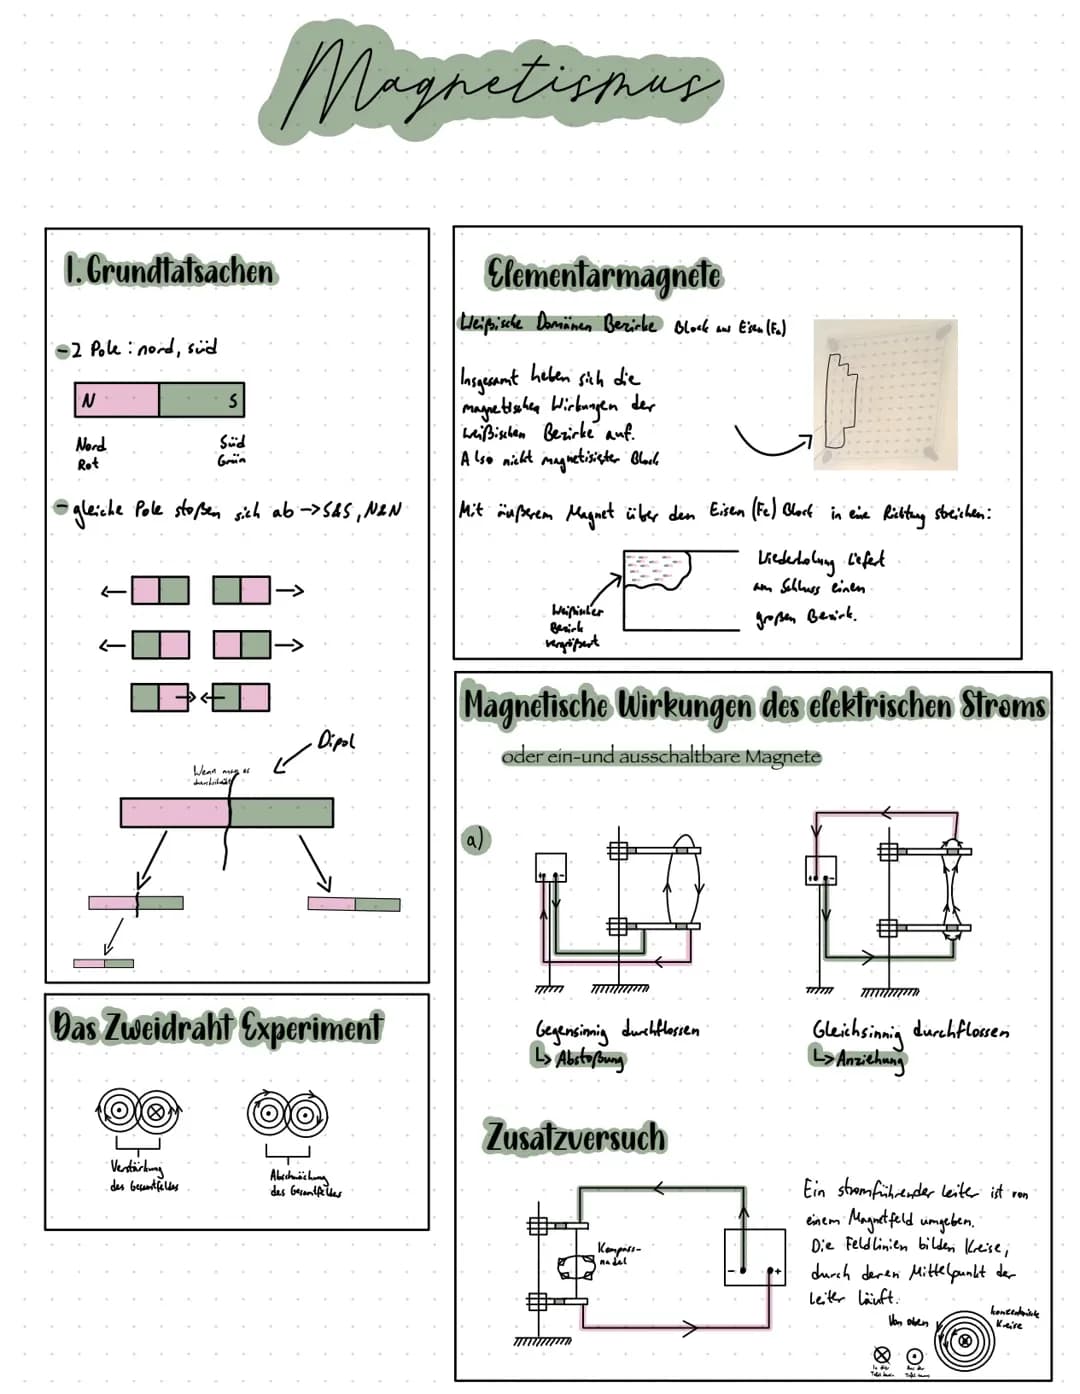 Magnetismus
1. Grundtatsachen
- 2 Pole: nord, süd
N S
Nord Süd
Rot Grün
- gleiche Pole stoßen sich ab -> S&S, N&N
Dipol
Wenn man es
durchschneidet
Das Zweidraht Experiment
Verstärkung
des Gesamtfeldes
Abschwächung
des Gesamtfeldes
Elementarmagnete
Weißische Domänen Bezirke Block aus Eisen (Fe)
Insgesamt heben sich die
magnetischen Wirkungen der
weißischen Bezirke auf.
Also nicht magnetisierter Block
Mit äußerem Magnet über den Eisen (Fe) Block in eine Richtung streichen:
Weißischer
Bezirk
vergrößert
Wiederholung liefert
am Schluss einen
großen Bezirk.
Magnetische Wirkungen des elektrischen Stroms
oder ein-und ausschaltbare Magnete
a)
+ -
+ -
Gegensinnig durchflossen
↳ Abstoßung
Gleichsinnig durchflossen
↳ Anziehung
Zusatzversuch
Kompass-
nadel
- +
Ein stromführender Leiter ist von
einem Magnetfeld umgeben.
Die Feldlinien bilden Kreise,
durch deren Mittelpunkt der
Leiter läuft.
Von oben
konzentrische
Kreise
In die
Tafel hinein
Aus der
Tafel heraus